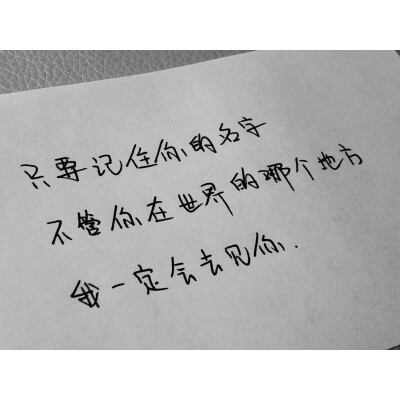 只要记住你的名字
不管你在世界的哪个地方
我一定会去见你.